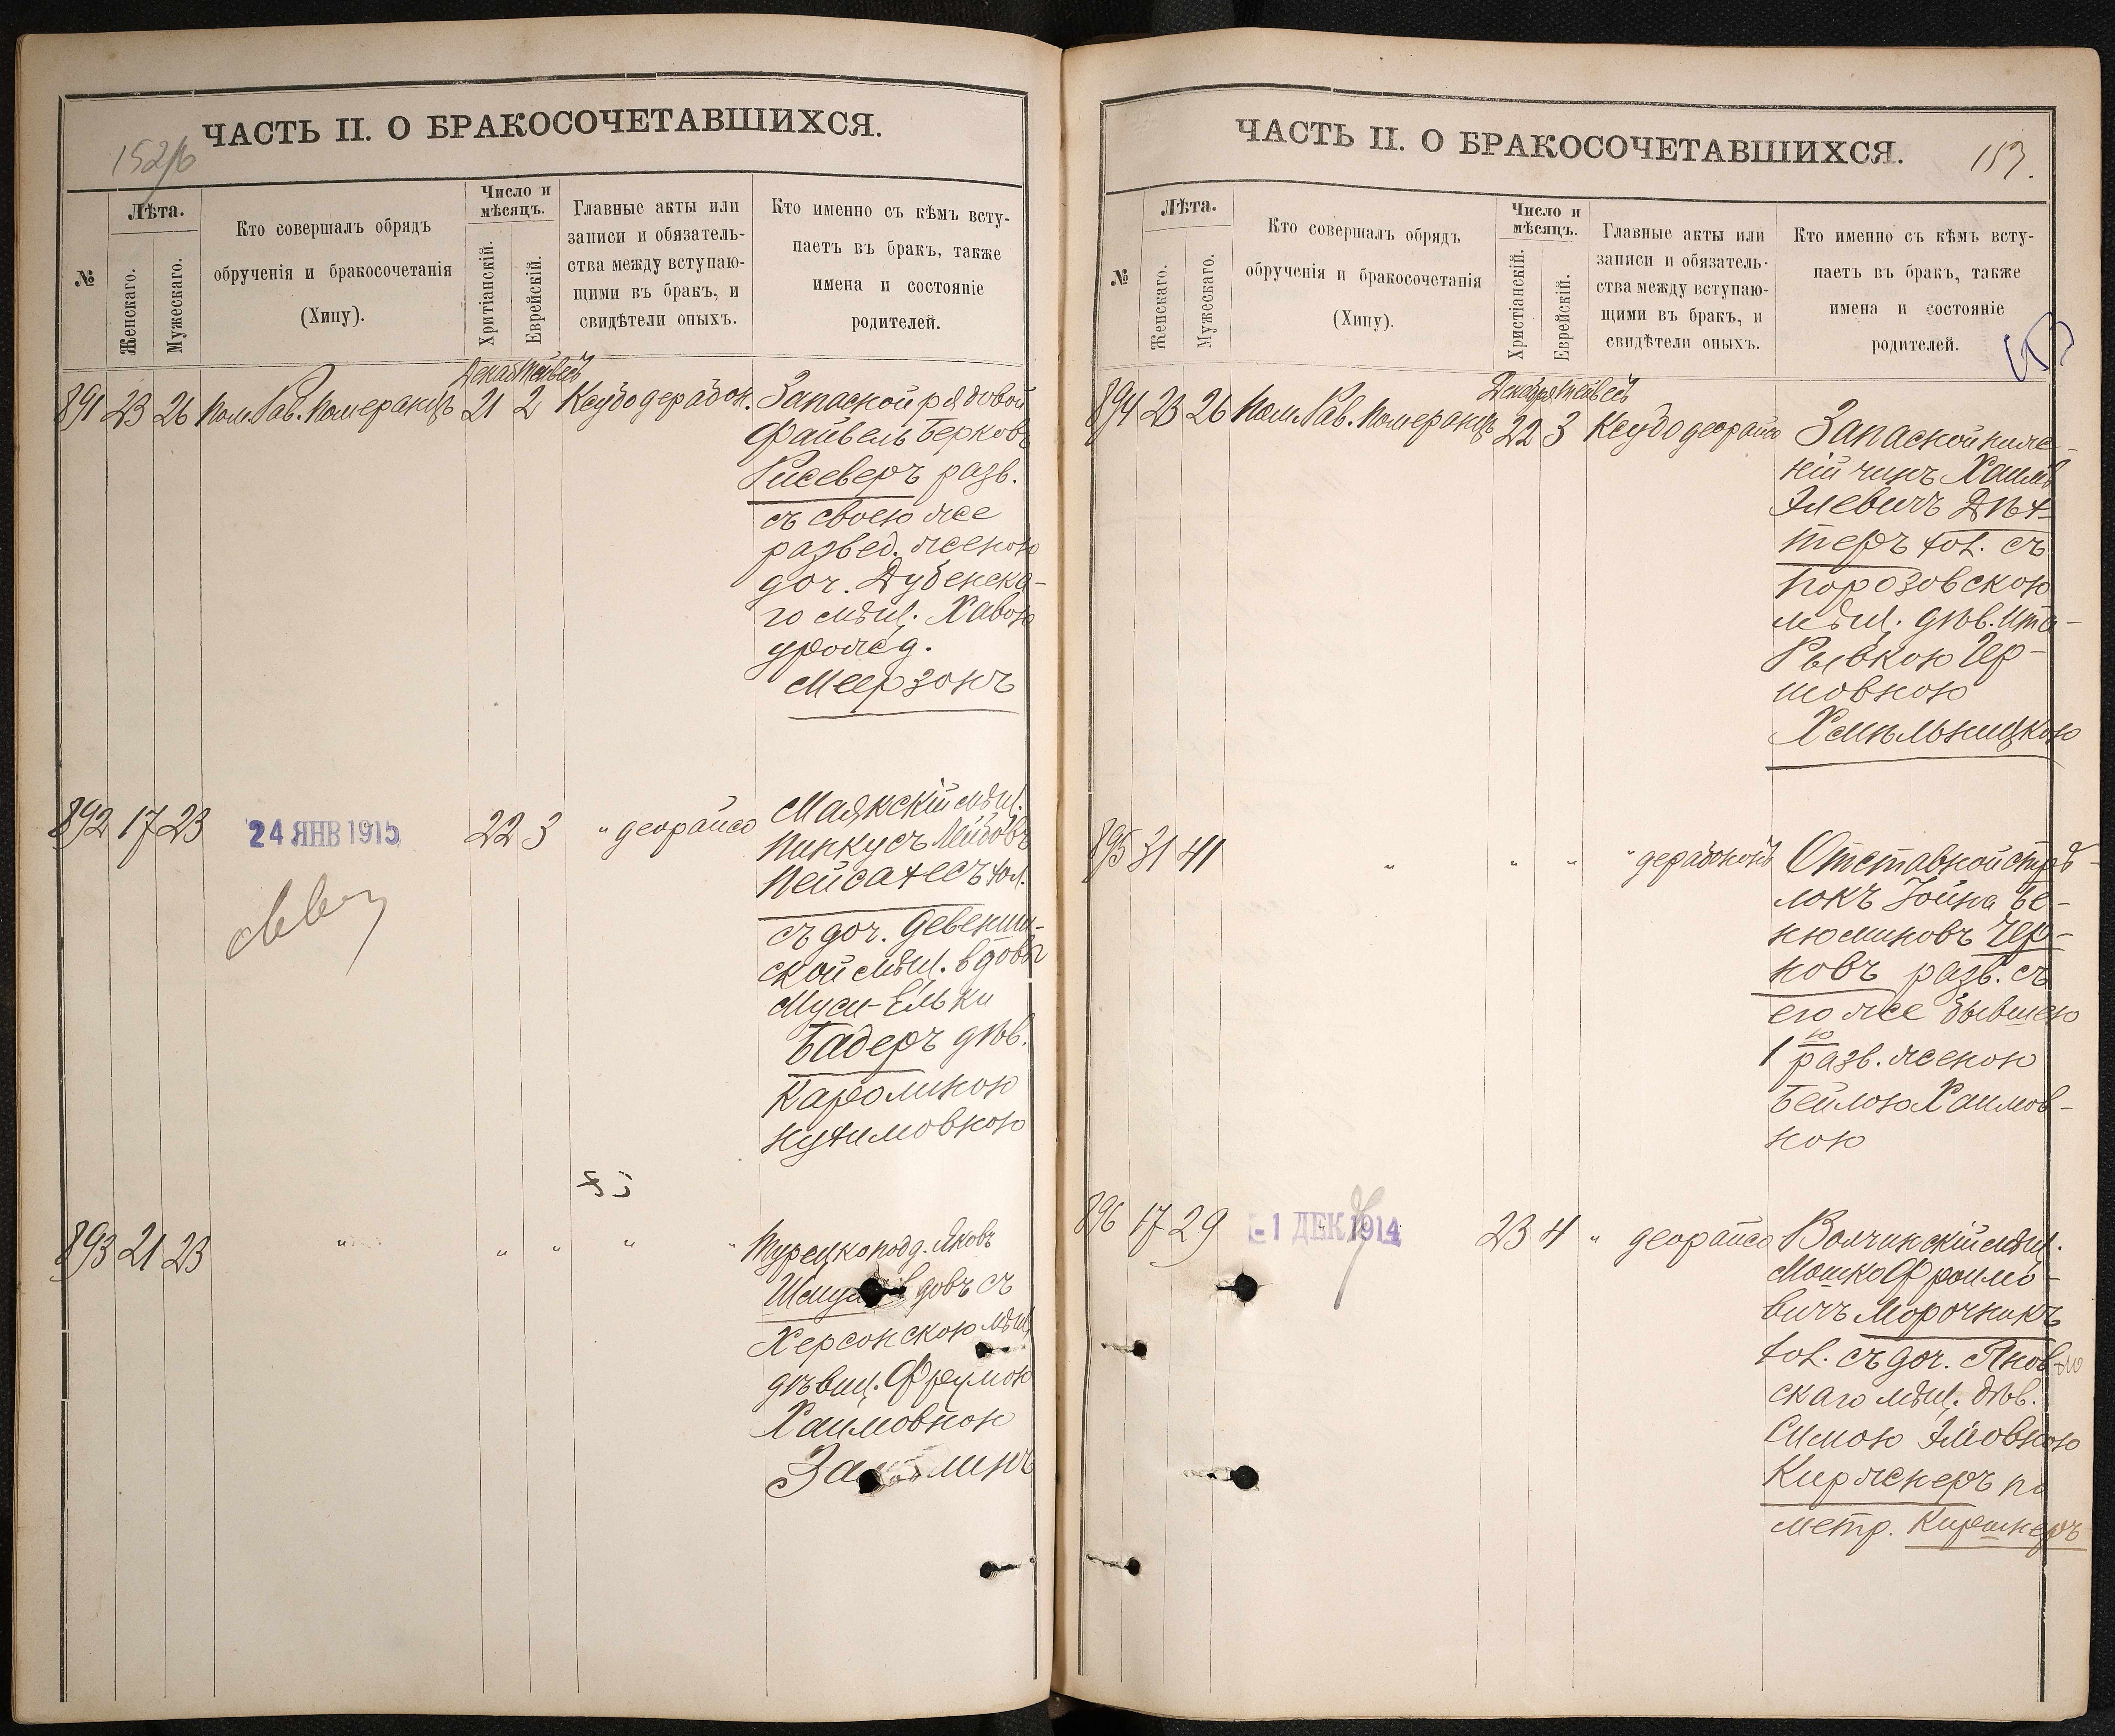 ЧАСТЬ II. О БРАКОСОЧЕТАВШИХСЯ.
№
Лѣта.
Женскаго.
Мужескаго.
Кто совершалъ обрядъ
обрученія и бракосочетанія
(Хипу).
Число и
мѣсяцъ.
Хритіанскій.
Еврейскій.
Главные акты или
записи и обязатель-
ства между вступаю-
щими въ бракъ, и
свидѣтели оныхъ.
Кто именно съ кѣмъ всту-
паетъ въ бракъ, также
имена и состояніе
родителей.
891 23 26 Пом. Рав. Померанцъ 21 2 Ксубо дерабон.
Запасной рядовой
Файвель Берковъ
Рисеверъ разв.
съ своею же
развед. женою
доч. Дубенска-
го мѣщ. Хавою
урожд.
Меерзонъ
892 17 23
24 ЯНВ 1915
22 3 " деорайсо
Маякскій мѣщ.
Пинкусъ Лейбовъ
Пейсахесъ хол.
съ доч. Девениш-
ской мѣщ. вдовы
Муси-Ельки
Бадеръ дѣв.
Каролиною
Нухимовною
893 21 23 " " " " "
Турецкоподд. Яковъ
вдовъ съ
Херсонскою мѣщ.
дѣвиц. Фреумою
Хаимовною
ЧАСТЬ II. О БРАКОСОЧЕТАВШИХСЯ.
153.
№
Лѣта.
Женскаго.
Мужескаго.
Кто совершалъ обрядъ
обрученія и бракосочетанія
(Хипу).
Число и
мѣсяцъ.
Христіанскій.
Еврейскій.
Главные акты или
записи и обязатель-
ства между вступаю-
щими въ бракъ, и
свидѣтели оныхъ.
Кто именно съ кѣмъ всту-
паетъ въ бракъ, также
имена и состояніе
родителей.
Декабря Тейвейсъ
894 23 26 Пом. Рав. Померанцъ 22 3 Ксубо деорайсо
Запасной ниж-
ній чинъ Хаимъ
Элевичъ Дѣх-
теръ хол. съ
Порозовскою
мѣщ. дѣв. Ита-
Рывкою Гер-
шовною
Хмѣльницкою
895 31 41 " " " " дерабононъ
Отставной стрѣ-
локъ Іойна Бе-
нюминовъ Чер-
новъ разв. съ
его же бывшею
1ю разв. женою
Бейлою Хаимов-
ною
896 17 29
- 1 ДЕК 1914
23 4 " деорайсо
Волчинскій мѣщ.
Мошко Фроимо-
вичъ Морочникъ
хол. съ доч. Янов-
скаго мѣщ. дѣв.
Симою Эліовною
Киржнеръ по
метр. Киршнеръ